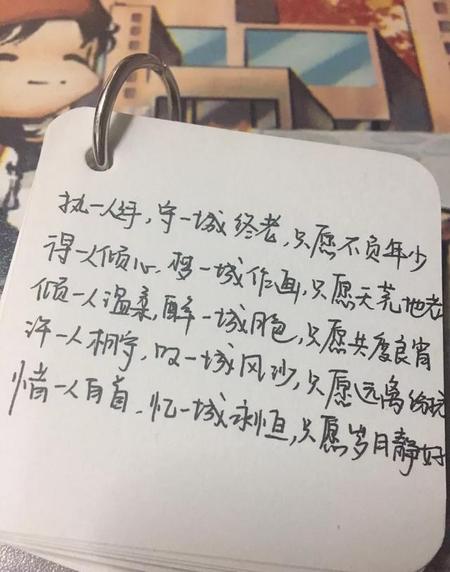 执一人手，守一城终老，只愿不负年少
得一人倾心，梦一城作画，只愿天荒地老
倾一人温柔，醉一城月色，只愿共度良宵
许一人相守，叹一城风沙，只愿远离纷扰
惜一人白首，忆一城永恒，只愿岁月静好